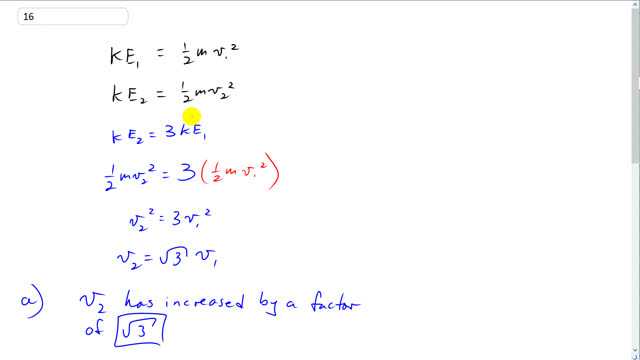 16
KE₁ = ½ m v₁²
KE₂ = ½ m v₂²
KE₂ = 3 KE₁
½ m v₂² = 3 (½ m v₁²)
v₂² = 3 v₁²
v₂ = √3 v₁
a) v₂ has increased by a factor
of √3